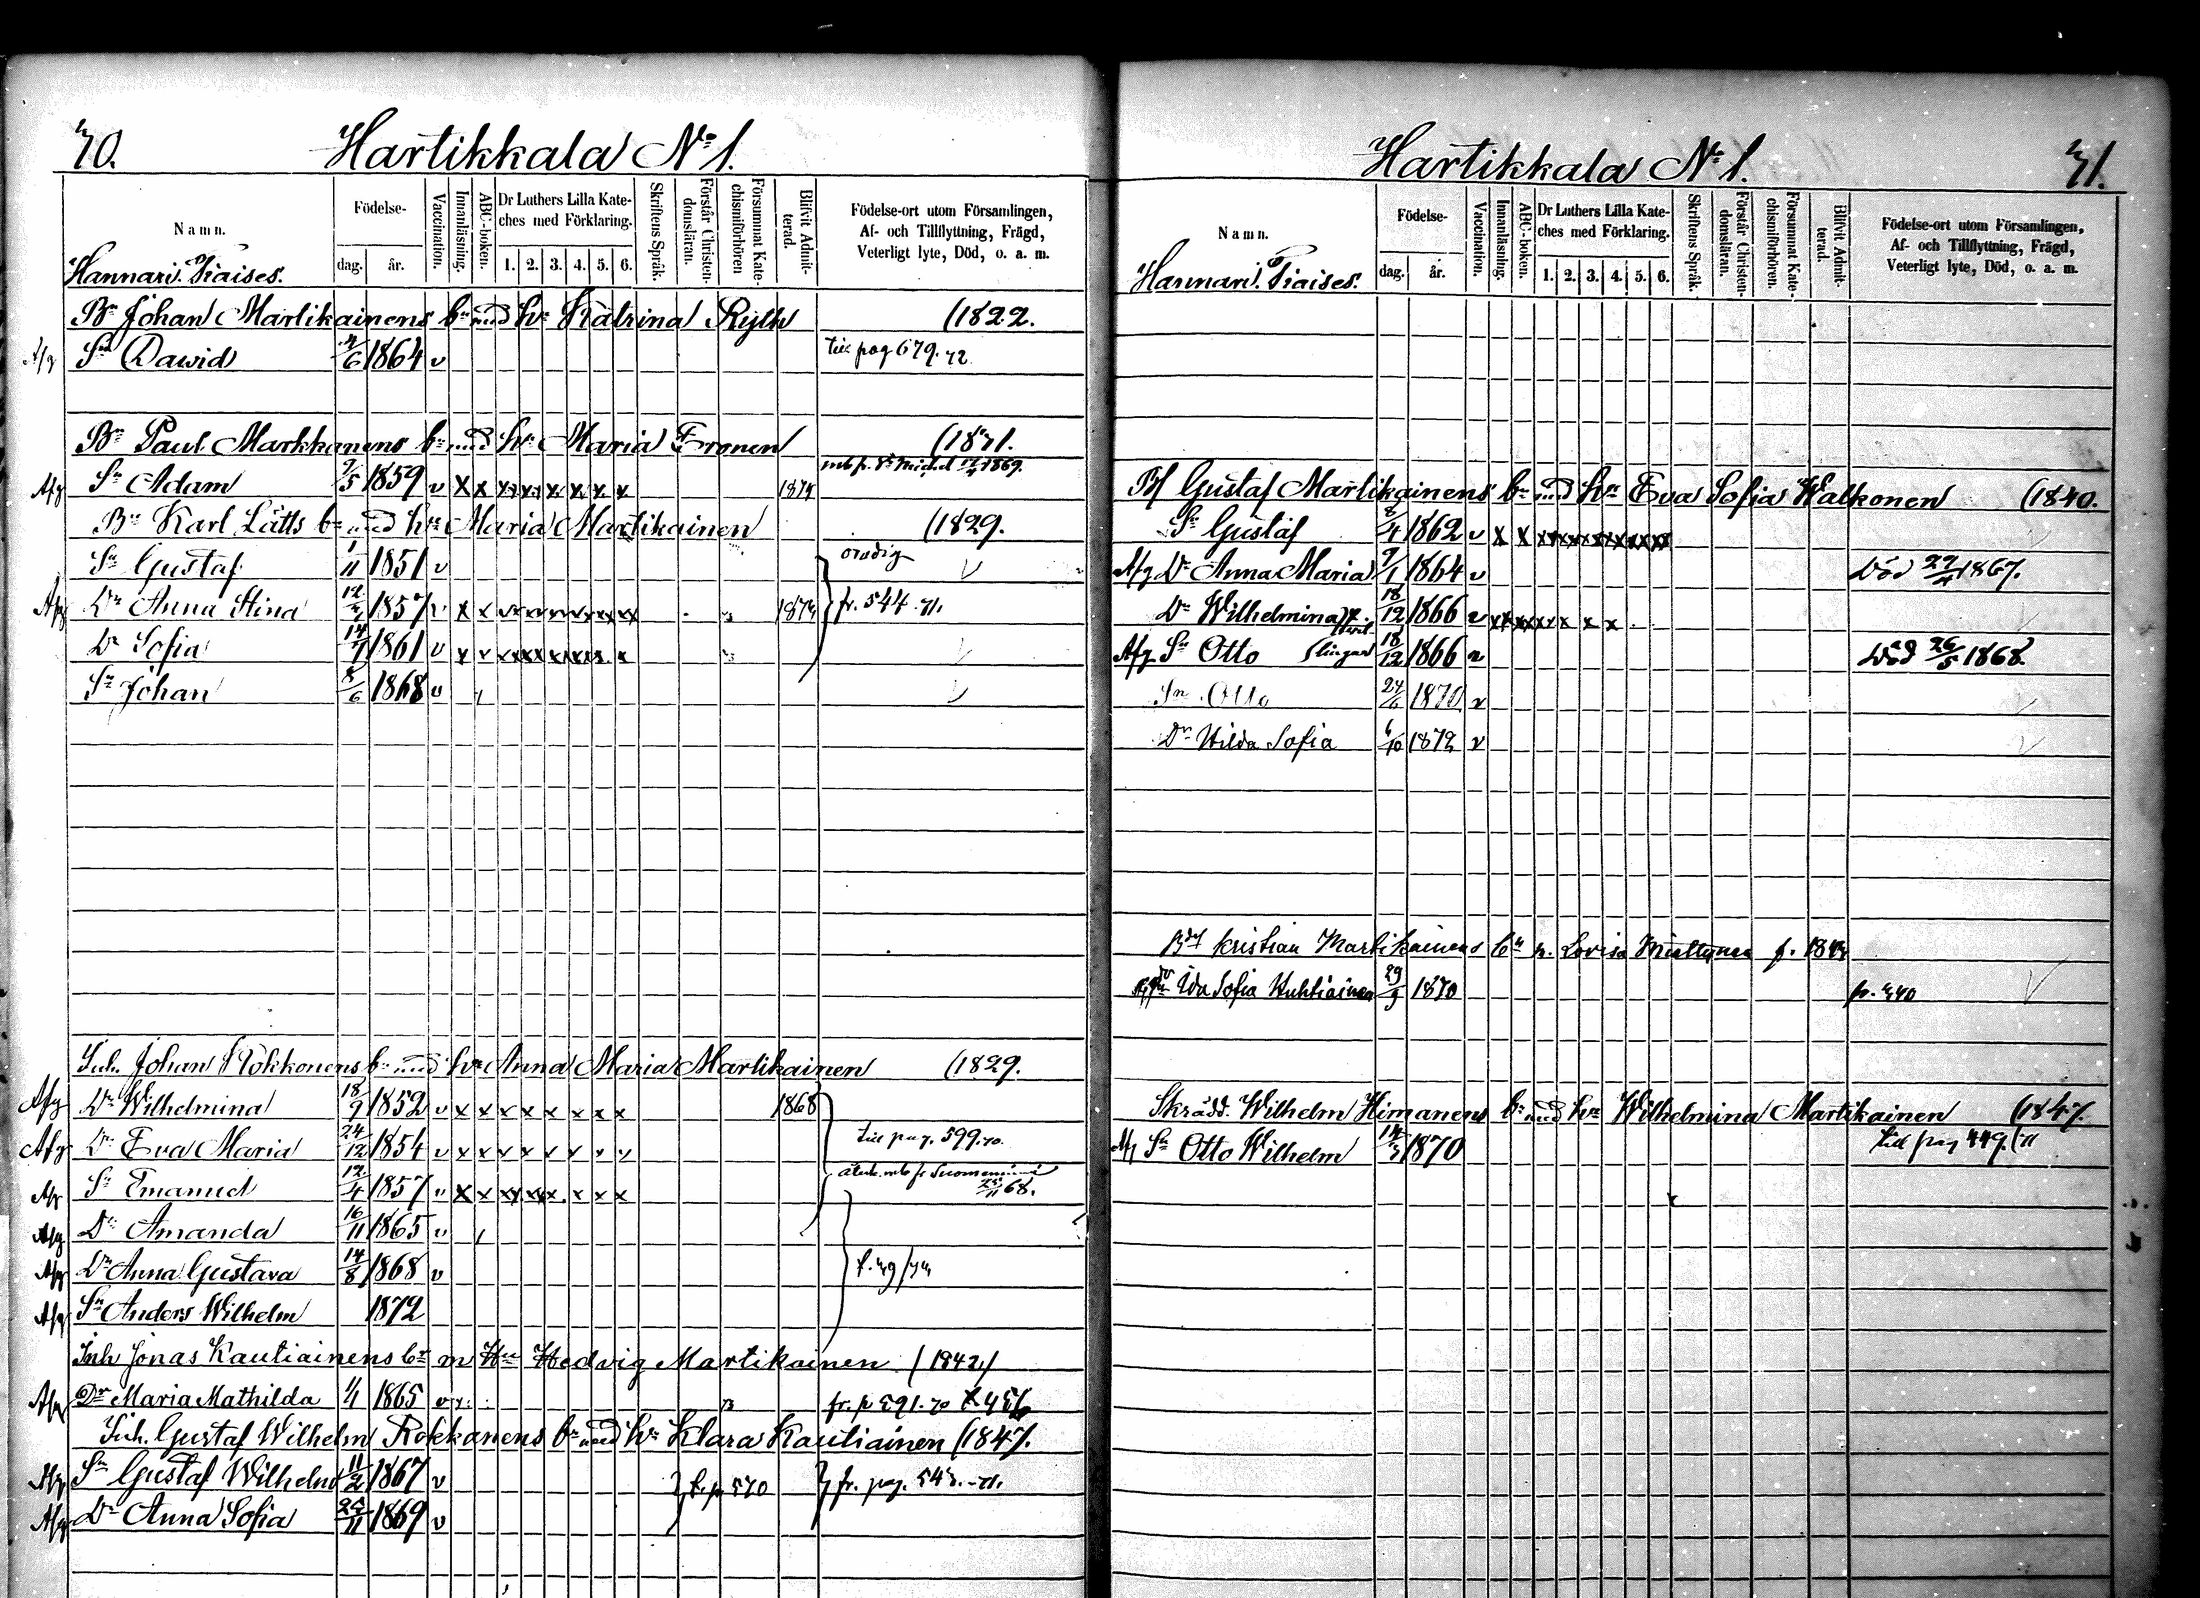 70.
Hartikkala No 1.
Namn.
Hannari. Piaises.
Födelse-
dag. år.
Vaccination.
Innanläsning.
ABC-boken.
Dr Luthers Lilla Kate-
ches med Förklaring.
1. 2. 3. 4. 5. 6.
Skriftens Språk.
Förstår Christen-
domsläran.
Försummat Kate-
chismiförhören
Blifvit Admit-
terad.
Födelse-ort utom Församlingen,
Af- och Tillflyttning, Frägd,
Veterligt lyte, Död, o. a. m.
Johan Martikainens bn med hu Katrina (1822.
Afg Sn Dawid 4/6 1864 v till pag 679. 72
Paul Markkanens bn med hu Maria (1831.
Afg Sn Adam 1859 v x x x x x x x x
Karl Lätts bn med hu Maria Martikainen (1829.
Sn Gustaf 1/11 1851 v
Afg Dr Anna Stina 1857 v x x fr. 544. 71.
Dr Sofia 1861 v
Sn Johan 8/6 1868 v
Inh. Johan Rokkonens bn med hu Anna Maria Martikainen (1829.
Afg Dr Wilhelmina 18/9 1852 v x x x x x x x x 1868
Afg Dr Eva Maria 24/12 1854 v x x x x x x v v till pag. 599. 70.
Afg Sn Emanuel 12/4 1857 v x x x x x x x x
Afg Dr Amanda 16/11 1865 v
Afg Dr Anna Gustava 14/8 1868 v
Afg Sn Anders Wilhelm 1872
Inh Jonas Kautiainens bn m Hu Hedvig Martikainen (1842)
Afg Dr Maria Mathilda 1/1 1865 v fr. p 591. 70
Inh. Gustaf Wilhelm Rokkanens bn med hu Klara Kautiainen (1847.
Afg Sn Gustaf Wilhelm 11/2 1867 v t. p 570 fr. pag. 543. -71.
Afg Dr Anna Sofia 25/11 1869 v
71.
Hartikkala No 1.
Namn.
Hannari. Piaises.
Födelse-
dag. år.
Vaccination.
Innanläsning.
ABC-boken.
Dr Luthers Lilla Kate-
ches med Förklaring.
1. 2. 3. 4. 5. 6.
Skriftens Språk.
Förstår Christen-
domsläran.
Försummat Kate-
chismiförhören.
Blifvit Admit-
terad.
Födelse-ort utom Församlingen,
Af- och Tillflyttning, Frägd,
Veterligt lyte, Död, o. a. m.
Gustaf Martikainens bn med hu Eva Sofia Walkonen (1840.
Sn Gustaf 1862 v x x
Afg Dr Anna Maria 1864 v Död 1867.
Dr Wilhelmina 18/12 1866 v
Afg Sn Otto 18/12 1866 v Död 26/5 1868.
Sn Otto 24/6 1870 v
Dr Hilda Sofia 6/10 1872 v
Kristian Martikainens bn m. Lovisa
Ida Sofia Huhtiainen 29/9 1870
Skrädd. Wilhelm Himanens bn med hu Wilhelmina Martikainen (1847.
Af Sn Otto Wilhelm 14/3 1870 till pag 449. (71